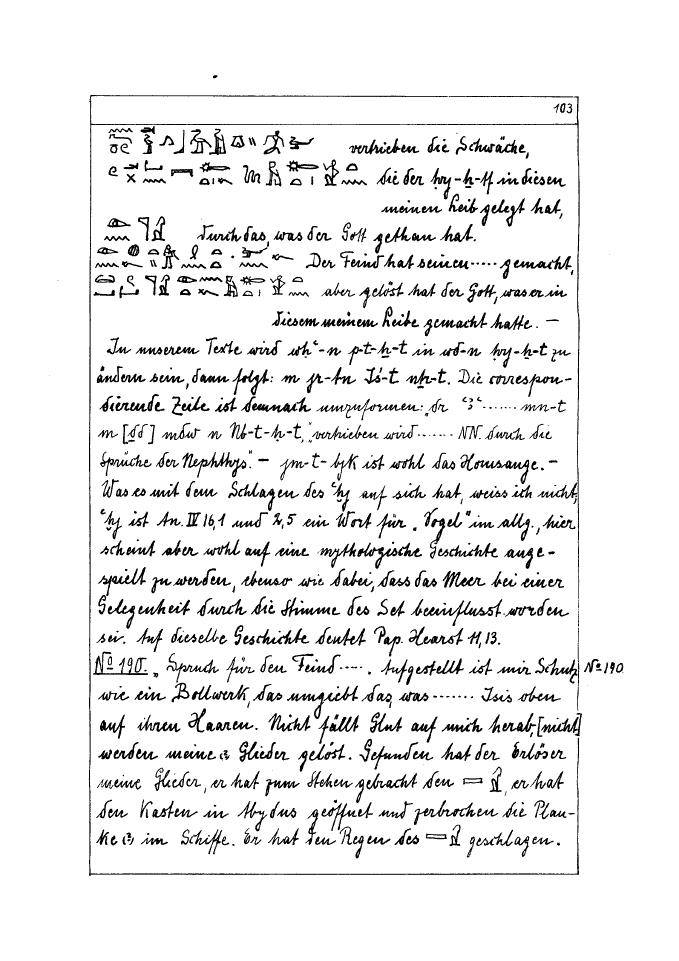 103
vertrieben die Schwäche,
die der ḥꜣy-ḫ-tf in diesen
meinen Leib gelegt hat,
durch das, was der Gott gethan hat.
Der Feind hat seinen ..... gemacht,
aber gelöst hat der Gott, was er in
diesem meinem Leibe gemacht hatte. —
In unserem Texte wird wḥꜥ-n p-t-ẖ-t in wd-n ḥꜣy-ẖ-t zu
ändern sein, dann folgt: m jr-tn Is-t nṯr-t. Die correspon-
dierende Zeile ist demnach umzuformen: dr ...... mn-t
m [dd] mdw n Nb-t-ḥ-t, "vertrieben wird ...... NN durch die
Sprüche der Nephthys". — jm-t-bjk ist wohl das Hornsauge. —
Was es mit dem Schlagen des ꜥḫj auf sich hat, weiss ich nicht,
ꜥḫj ist An. IV 16,1 und 2,5 ein Wort für „Vogel" im allg., hier
scheint aber wohl auf eine mythologische Geschichte ange-
spielt zu werden, ebenso wie dabei, dass das Meer bei einer
Gelegenheit durch die Stimme des Set beeinflusst worden
sei. Auf dieselbe Geschichte deutet Pap. Hearst 11,13.
No 190. „Spruch für den Feind ..... Aufgestellt ist mir Schutz No 190
wie ein Bollwerk, das umgiebt das, was ....... Isis oben
auf ihren Haaren. Nicht fällt Glut auf mich herab, [nicht]
werden meine (?) Glieder gelöst. Gefunden hat der Erlöser
meine Glieder, er hat zum Stehen gebracht den , er hat
den Kasten in Abydus geöffnet und zerbrochen die Plan-
ke (?) im Schiffe. Er hat den Regen des geschlagen.